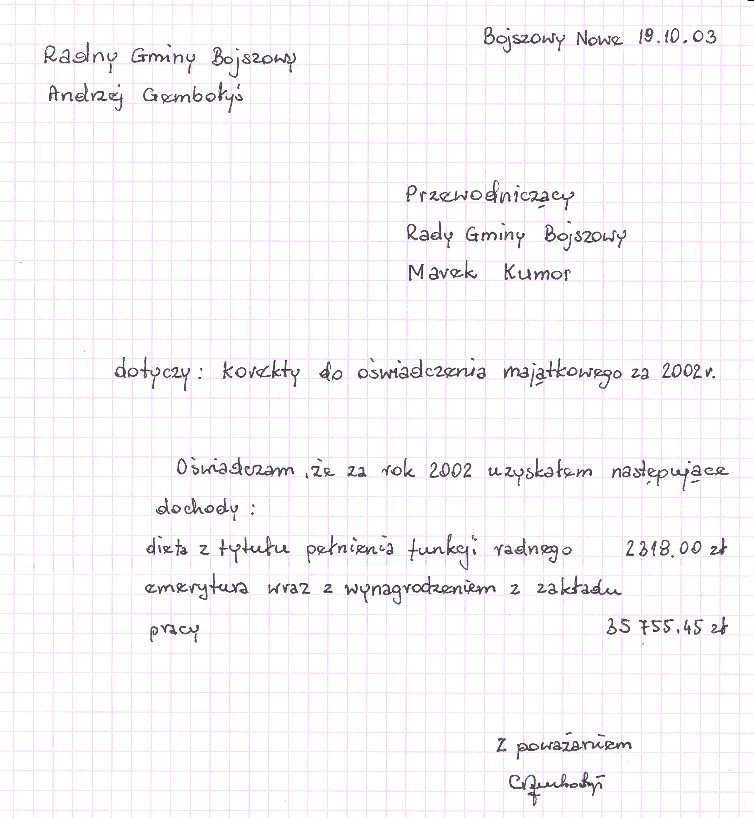 Bojszowy Nowe 19.10.03
Radny Gminy Bojszowy
Andrzej Gembołyś
Przewodniczący
Rady Gminy Bojszowy
Marek Kumor
dotyczy: korekty do oświadczenia majątkowego za 2002r.
Oświadczam, że za rok 2002 uzyskałem następujące
dochody:
dieta z tytułu pełnienia funkcji radnego 2318,00 zł
emerytura wraz z wynagrodzeniem z zakładu
pracy 35 755,45 zł
Z poważaniem